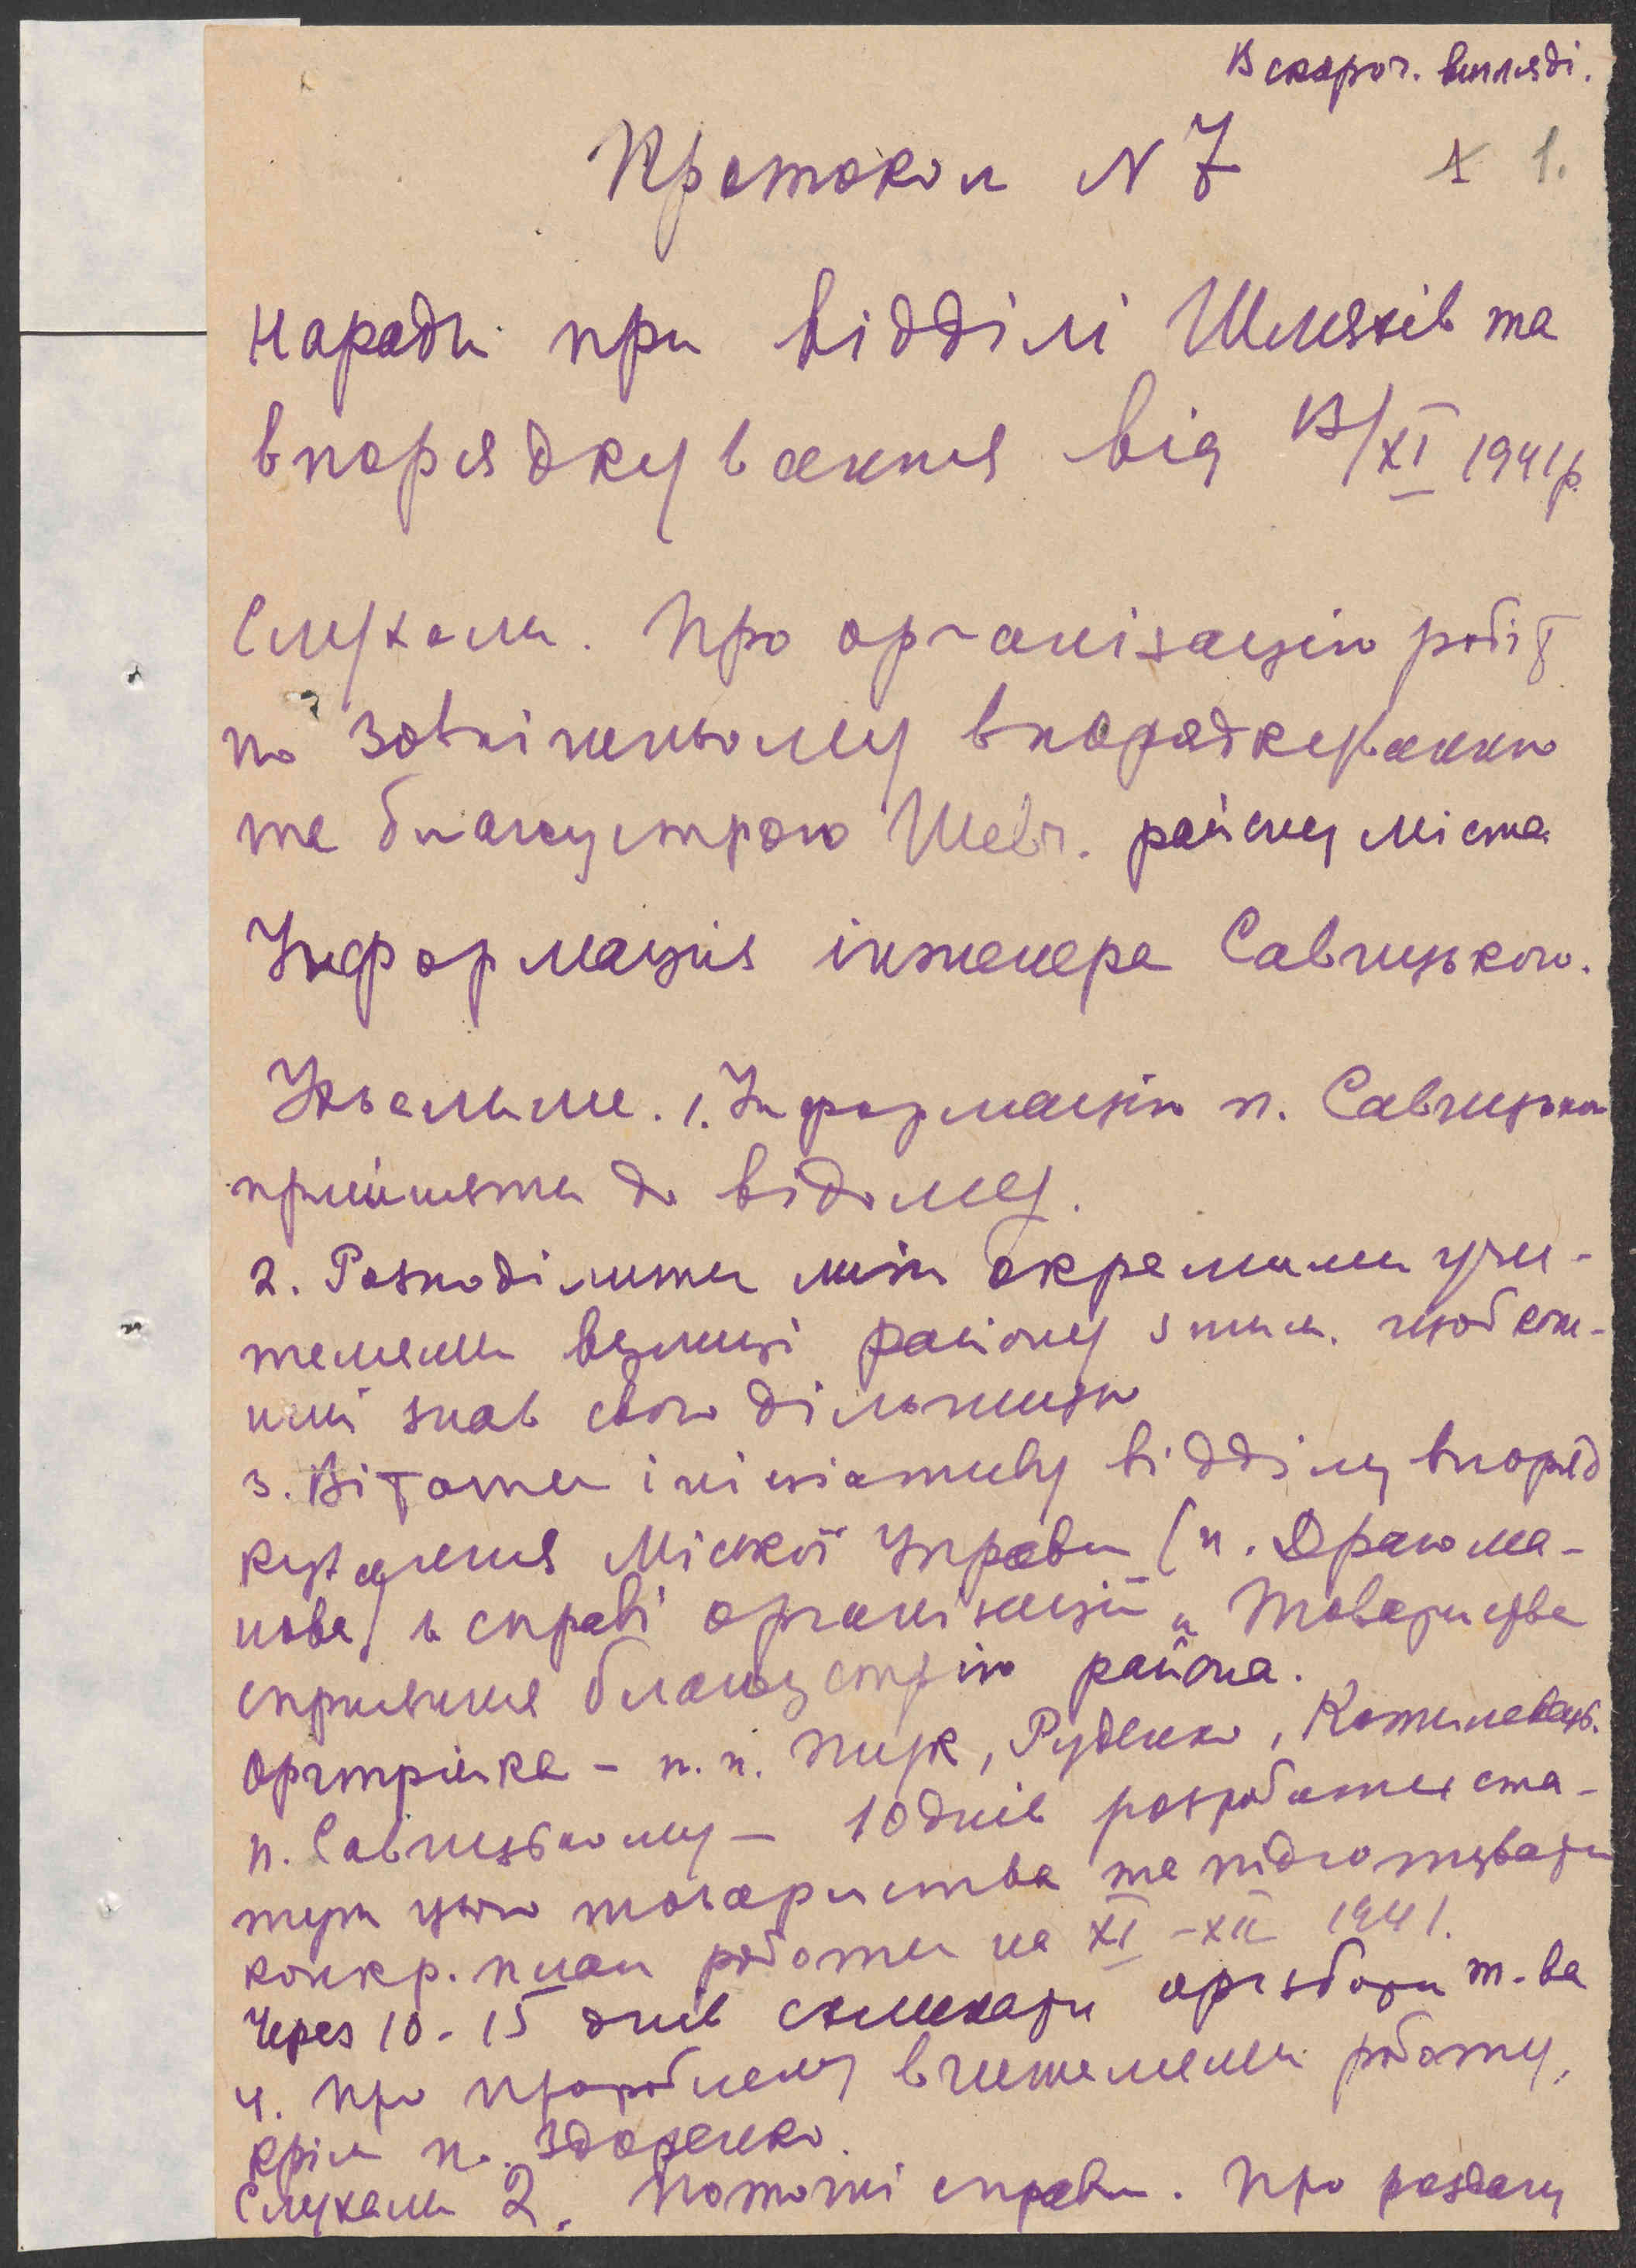 В скороч. вигляді.
Протокол N 7
1 1.
Наради при відділі Шляхів та
впорядкування від 13/XI 1941 р.
Слухали. Про організацію робіт
по зовнішньому впорядкуванню
та благоустрою Шевч. району міста
Інформація інженера Савицького.
Ухвалили. 1. Інформацію п. Савицьког
прийняти до відому.
2. Розподілити між окремими учи-
телями вулиці району з тим. щоб кож-
ний знав свою дільницю
3. Вітати ініціативу відділу впоряд
кування Міської Управи (п. Драгома-
нова) в справі організації „Товариства
сприяння благоустрію района.
Оргтрійка - п.п. Пцук, Руденко,
п. Савицькому - 10 днів розробити ста-
тут цього товариства та підготувати
конкр. план роботи на XI - XII 1941.
Через 10-15 днів скликати оргзбори т-ва
4. Про пророблену вчителями роботу,
крім п. Здоренко.
Слухали 2. Поточні справи. Про роздачу